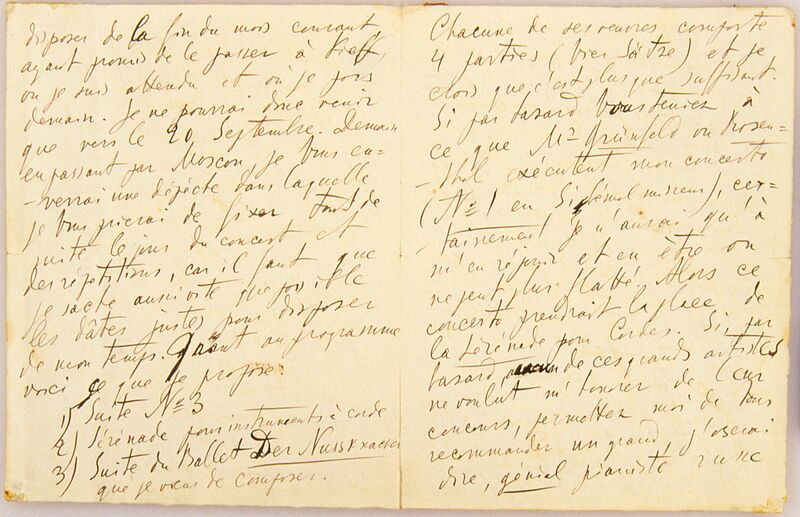 disposer de la fin du mois courant
ayant promis de le passer à Kieff,
où je suis attendu et où je pars
demain. Je ne pourrai donc venir
que vers le 20 Septembre. Demain
en passant par Moscou, je Vous en=
-verrai une dépèche dans laquelle
je Vous prierai de fixer tout de
suite le jour du concert et
des répétitions, car il faut que
je sache aussi vite que possible
les dâtes justes pour disposer
de mon temps. Quant au programme
voici ce que je propose:
1) Suite No 3
2) Sérénade pour instruments à corde
3) Suite du Ballet Der Nussknacker
que je viens de composer.
Chacune de ses œuvres comporte
4 parties (bien Sûtre) et je
crois que c'est plus que suffisant.
Si par hasard Vous teniez à
ce que Mr Grünfeld ou Rosen=
-thal exécutent mon concerto
(No 1 en Si bémol mineur), cer=
-tainement je n'aurai qu'à
m'en réjouir et en être on
ne peut plus flatté. Alors ce
concerto prendrait la place de
la Sérénade pour Cordes. Si par
hasard aucun de ces grands artistes
ne voulût m'honorer de leur
concours, permettez moi de Vous
recommander un grand, j'oserai
dire, génial pianiste russe